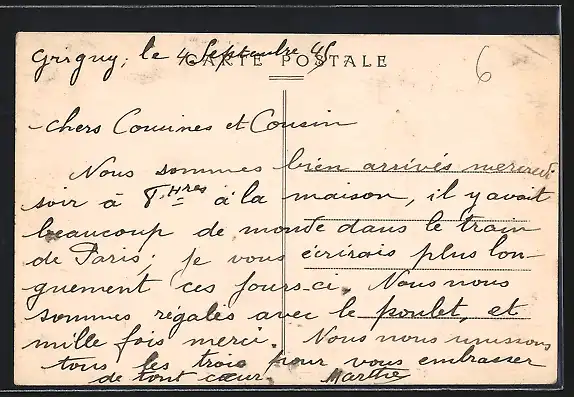 Grigny, le 4 Septembre 45
CARTE POSTALE
6
chers Cousines et Cousin
Nous sommes bien arrivés mercredi
soir à 8 Hres à la maison, il y avait
beaucoup de monde dans le train
de Paris, je vous écrirais plus lon-
guement ces jours-ci. Nous nous
sommes régalés avec le poulet, et
mille fois merci. Nous nous unissons
tous les trois pour vous embrasser
de tout cœur. Marthe